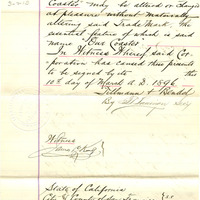 Coaster" may be altered or changed
at pleasure without materially
altering said Trade Mark. The
essential feature of which is said
name "Our Coaster"
In Witness Whereof said Cor-
poration has caused these presents
to be signed by its
10th day of March A.D. 1896.
Tillmann & Bendel
By
Witness
State of California
City & County of San Francisco } ss